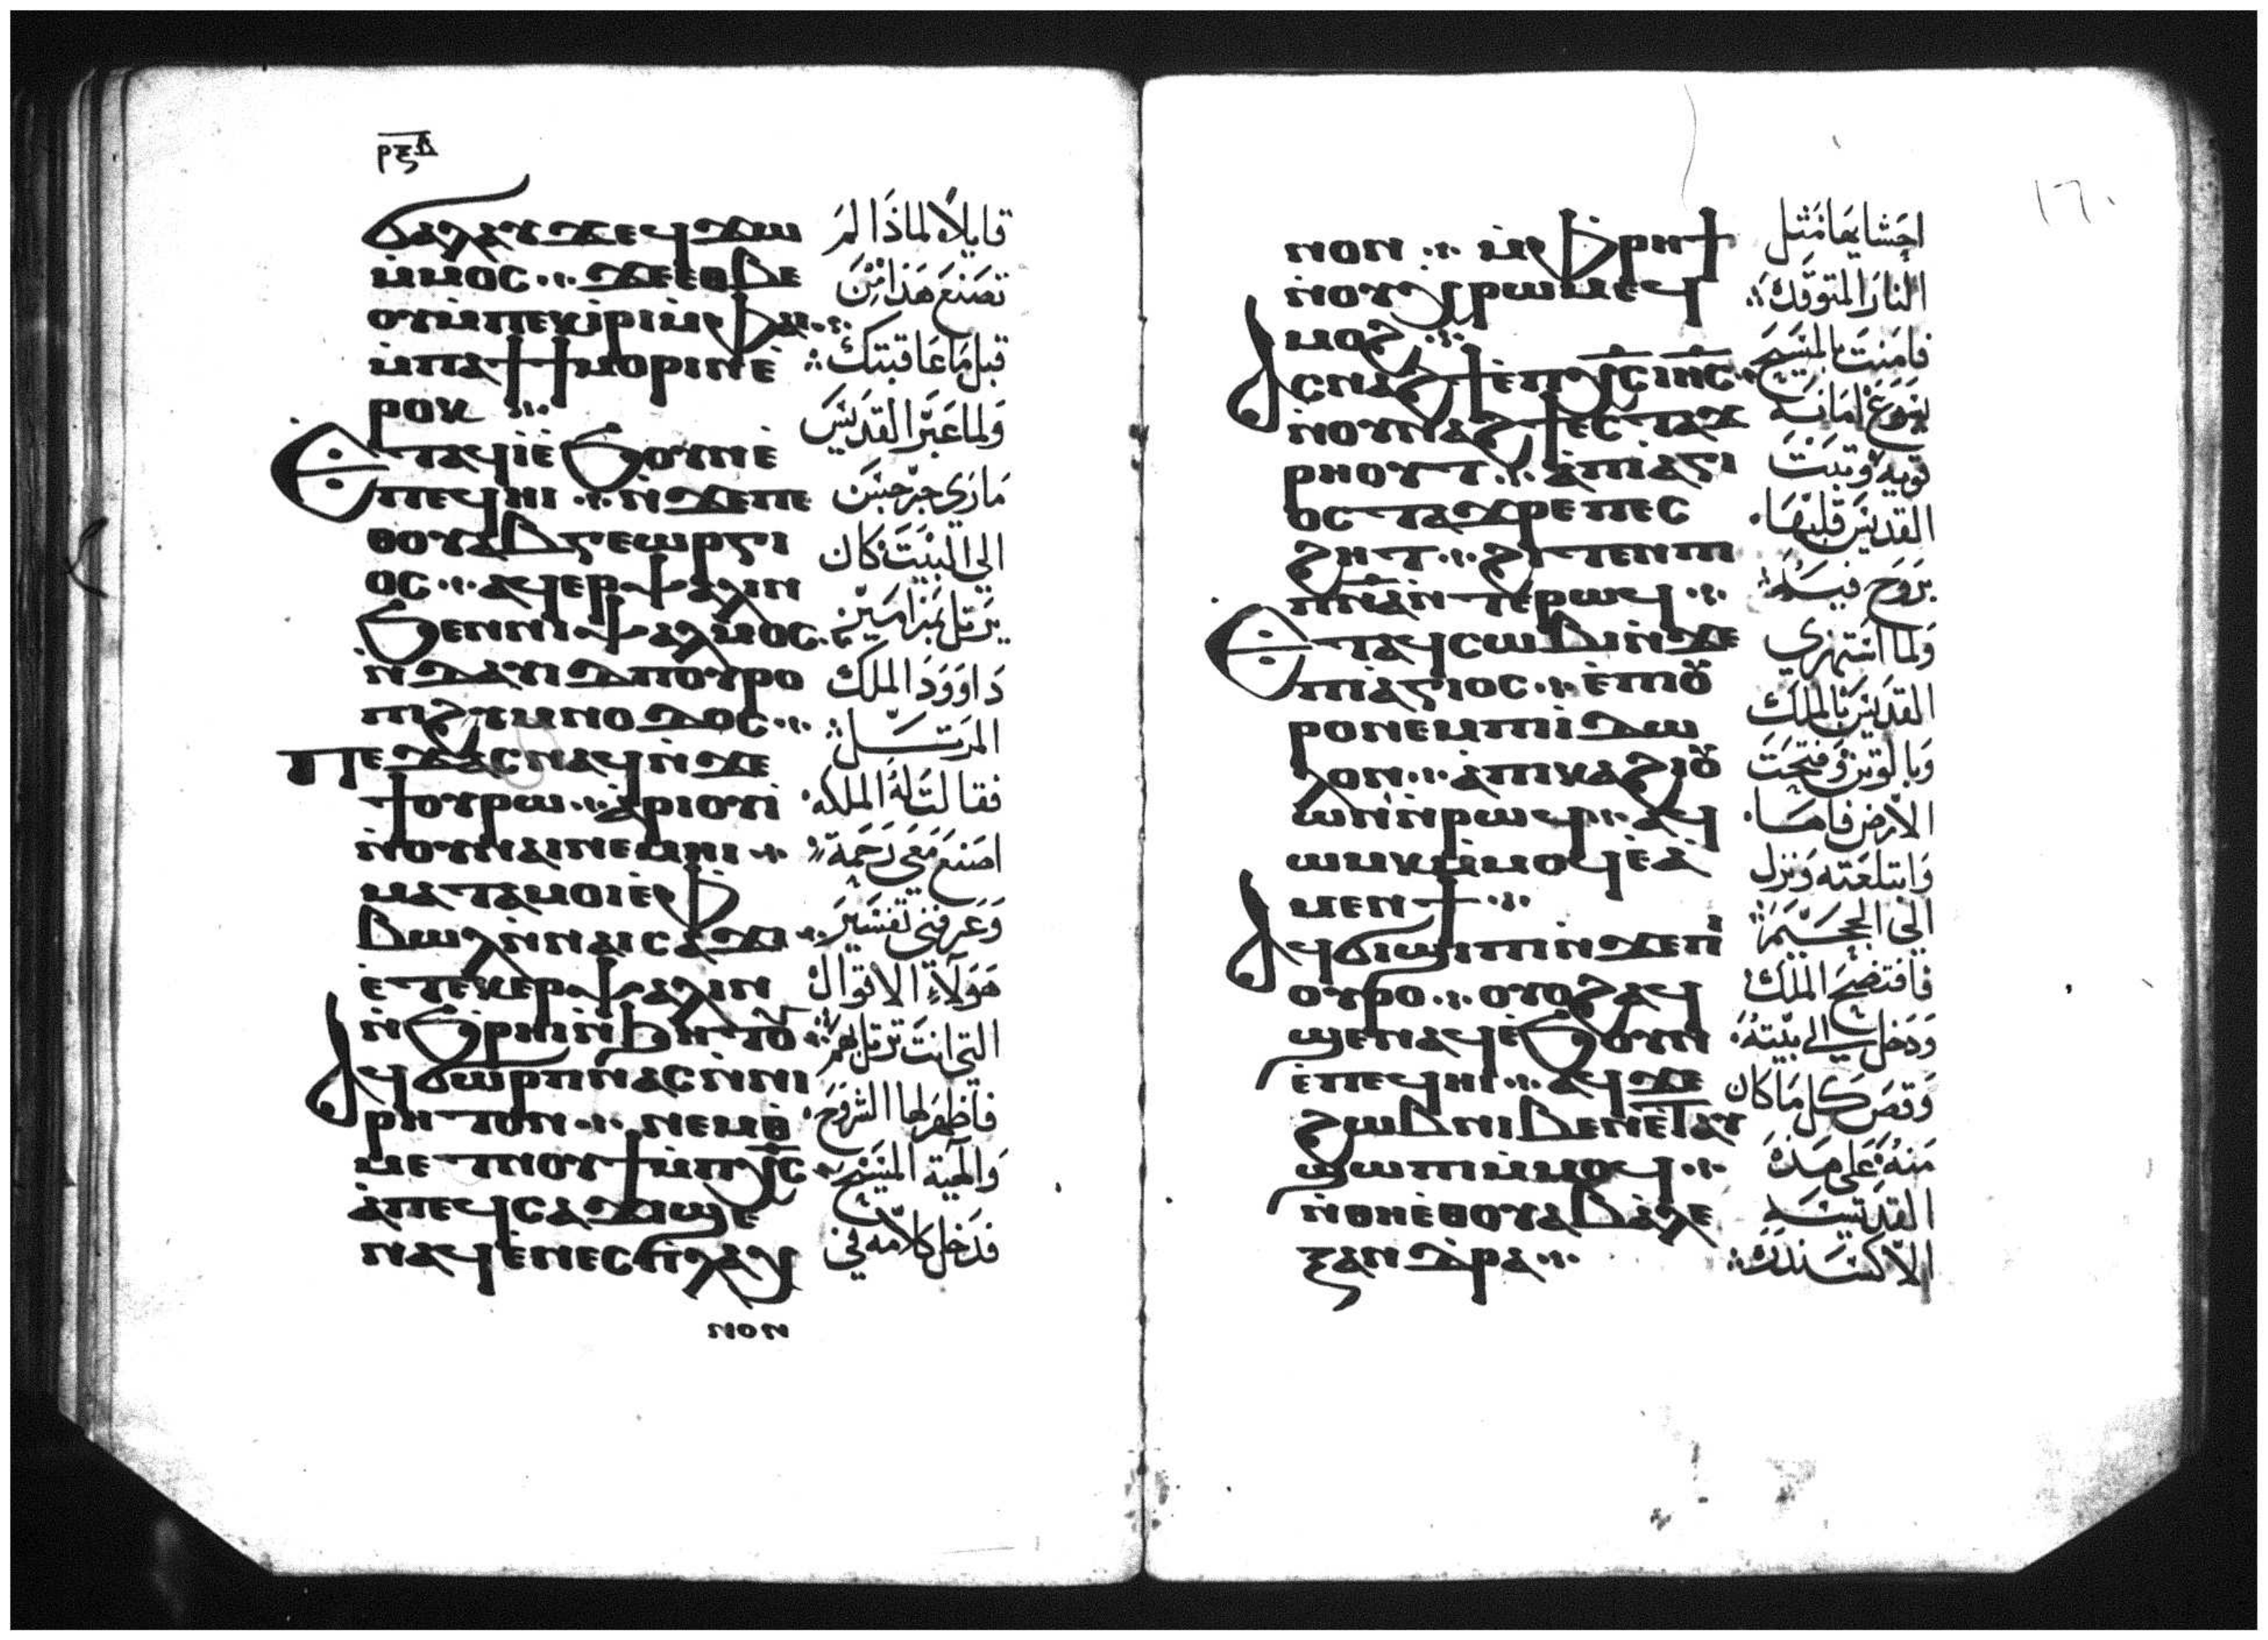 ⲣⲝⲃ
ϭⲁⲗⲁⲩϫ ⲉϥϫⲱ
ⲙ̀ⲙⲟⲥ ⲁ̀
ⲙ̀ⲡⲁϯϯⲙⲟⲣⲓ ⲛ̀ⲉ̀
ⲣⲟⲕ
Ⲉⲧⲁϥⲓ ⲉ̀ϧⲟⲩⲛ ⲉ̀
ⲡⲉϥⲏⲓ ⲛ̀ϫⲉ ⲡⲉ
ⲑⲟⲩⲁⲃ ⲅⲉⲱⲣⲅⲓ
ⲟⲥ ⲁϥⲉⲣⲯⲁⲗⲓⲛ
ϧⲉⲛ ⲛⲓⲯⲁⲗⲙⲟⲥ
ⲛ̀ⲇⲁⲩⲓⲇ ⲡⲟⲩⲣⲟ
ⲡⲓϩⲩⲙⲛⲟⲇⲟⲥ
Ⲡⲉϫⲁⲥ ⲛⲁϥ ⲛ̀ϫⲉ
ϯⲟⲩⲣⲱ ⲁ̀ⲣⲓⲟⲩⲓ̀
ⲛ̀ⲟⲩⲛⲁⲓ ⲛⲉⲙⲏⲓ
ⲙⲁⲧⲁⲙⲟⲓ ⲉ̀ⲫ
ⲃⲱⲗ ⲛ̀ⲛⲁⲓⲥⲁϫⲓ
ⲉ̀ⲧⲉⲕⲉⲣⲯⲁⲗⲓⲛ
ⲛ̀ϧⲣⲏⲓ ⲛ̀ϧⲏⲧⲟⲩ
Ⲁϥϭⲱⲣⲡ ⲛⲁⲥ ⲛ̀ⲛⲓ
ⲣⲏⲧⲟⲛ ⲛⲉⲙ ⲑ
ⲙⲉⲧⲛⲟⲩϯ ⲙ̀ⲡⲭ̅ⲥ̅
ⲁ̀ⲡⲉϥⲥⲁϫⲓ ϣⲉ
ⲛⲁϥ ⲉ̀ⲛⲉⲥⲥⲡⲗⲁⲭ
ⲛⲟⲛ
قايلاً لماذا لم
تصنع هذا من
قبل ما عاقبتك
ولما عبر القديس
ماري جرجس
الي البيت كان
يرتل بمزامير
داوود الملك
المرتل
فقالت له الملكه
اصنع معي رحمة
وعرفني تفسير
هولاء الاقوال
التي انت ترتل بهم
فاظهر لها الشروح
والهية المسيح
فدخل كلامه في
١٦٠
ⲛⲟⲛ ⲙ̀ⲫⲣⲏϯ
ⲛ̀ⲟⲩⲭⲣⲱⲙ ⲉϥ
ⲙⲟϩ
Ⲁⲥⲛⲁϩϯ ⲉ̀ⲡⲭ̅ⲥ̅ ⲓⲏ̅ⲥ̅
ⲛ̀ⲟⲩⲛⲁϩϯ ⲉⲥⲧⲁϫ
ⲣⲏⲟⲩⲧ ⲁ̀ⲡⲓⲁ̀ⲅⲓ
ⲟⲥ ⲧⲁϫⲣⲉ ⲡⲉⲥ
ϩⲏⲧ ϩⲓⲧⲉⲛ ⲡⲓ
ⲡ̅ⲛ̅ⲁ̅ ⲛ̀ⲧⲉ ⲣⲱϥ
Ⲉⲧⲁϥⲥⲱⲃⲓ ⲛ̀ϫⲉ
ⲡⲓⲁ̀ⲅⲓⲟⲥ ⲉ̀ⲡⲟⲩ
ⲣⲟ ⲛⲉⲙ ⲡⲓⲓ̀ⲇⲱ
ⲗⲟⲛ ⲁ̀ⲡⲓⲕⲁϩⲓ ⲟⲩ
ⲱⲛ ⲛ̀ⲣⲱϥ ⲁϥ
ⲱⲙⲕ ⲙ̀ⲙⲟϥ ⲉ̀ⲁ̀
ⲙⲉⲛϯ
Ⲁϥϭⲓϣⲓⲡⲓ ⲛ̀ϫⲉ ⲡⲓ
ⲟⲩⲣⲟ ⲟⲩⲟϩ ⲁϥ
ϣⲉⲛⲁϥ ⲉ̀ϧⲟⲩⲛ
ⲉ̀ⲡⲉϥⲏⲓ ⲁϥϫⲉ
ϩⲱⲃ ⲛⲓⲃⲉⲛ ⲉ̀ⲧⲁⲩ
ϣⲱⲡⲓ ⲙ̀ⲙⲟϥ
ⲛ̀ⲑⲏⲉ̀ⲑⲟⲩⲁⲃ ⲁ̀ⲗⲉ
ⲝⲁⲛⲇⲣⲁ
احشايها مثل
النار المتوقده
فامنت بالمسيح
يسوع امانه
قويه وثبت
القديس قلبها
بروح فيه
ولما استهزي
القديس بالملك
وبالوثن وفتحت
الارض فاها
وابتلعته ونزل
الي الجحيم
فافتضح الملك
ودخل الي بيته
وقص كل ما كان
منه علي هذه
القديسه
الاكسندره